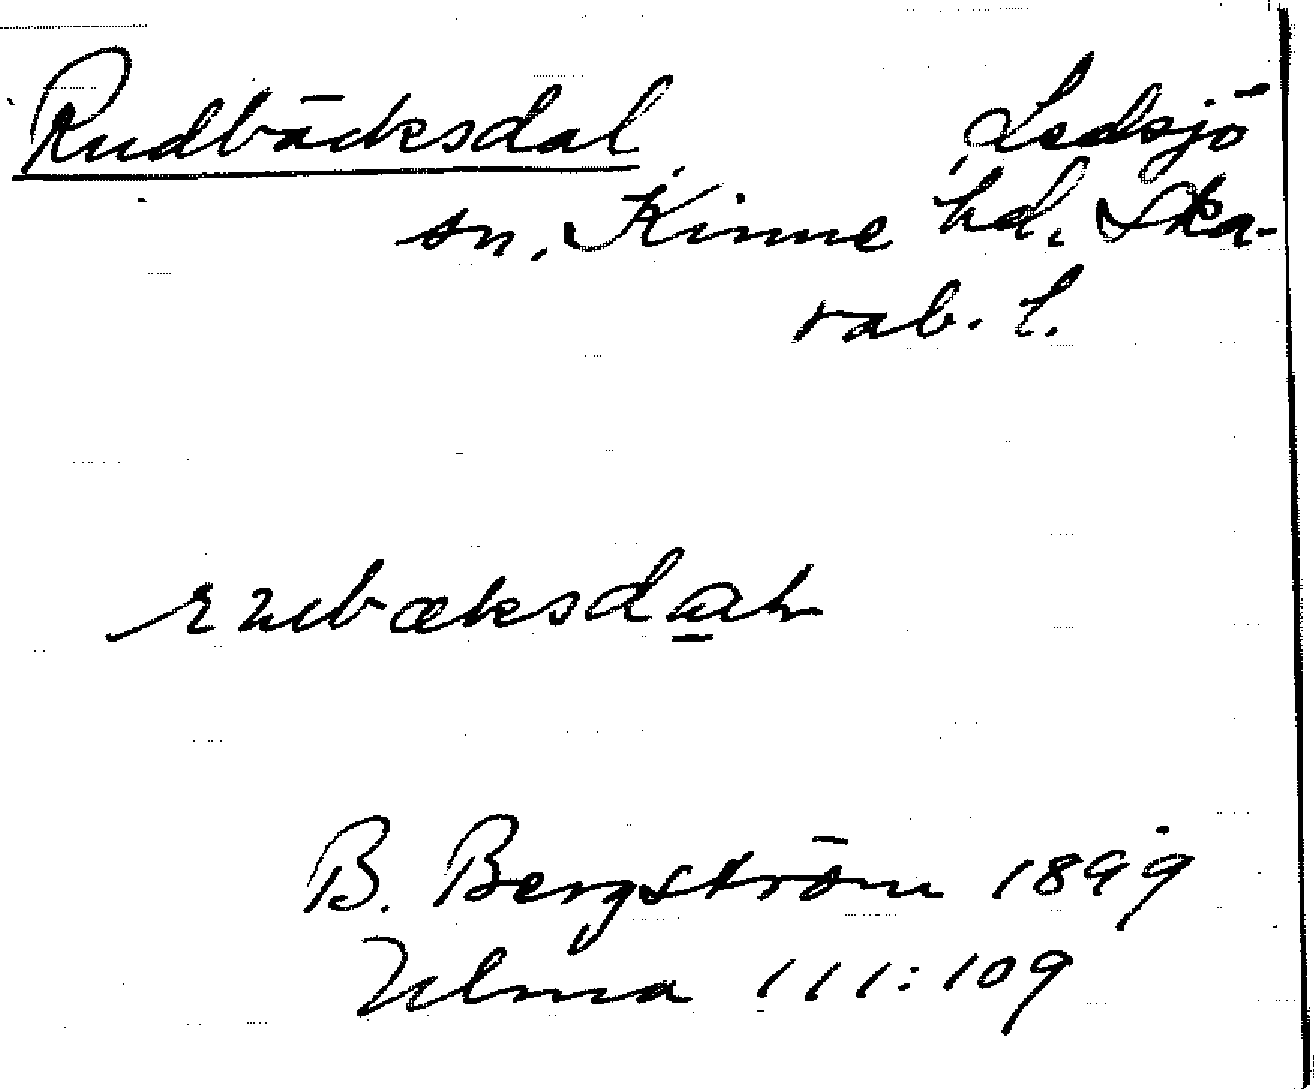 Rudbäcksdal Ledsjö
sn. Kinne hd. Ska-
rab. l.
B. Bergström 1899
Ulma 111:109